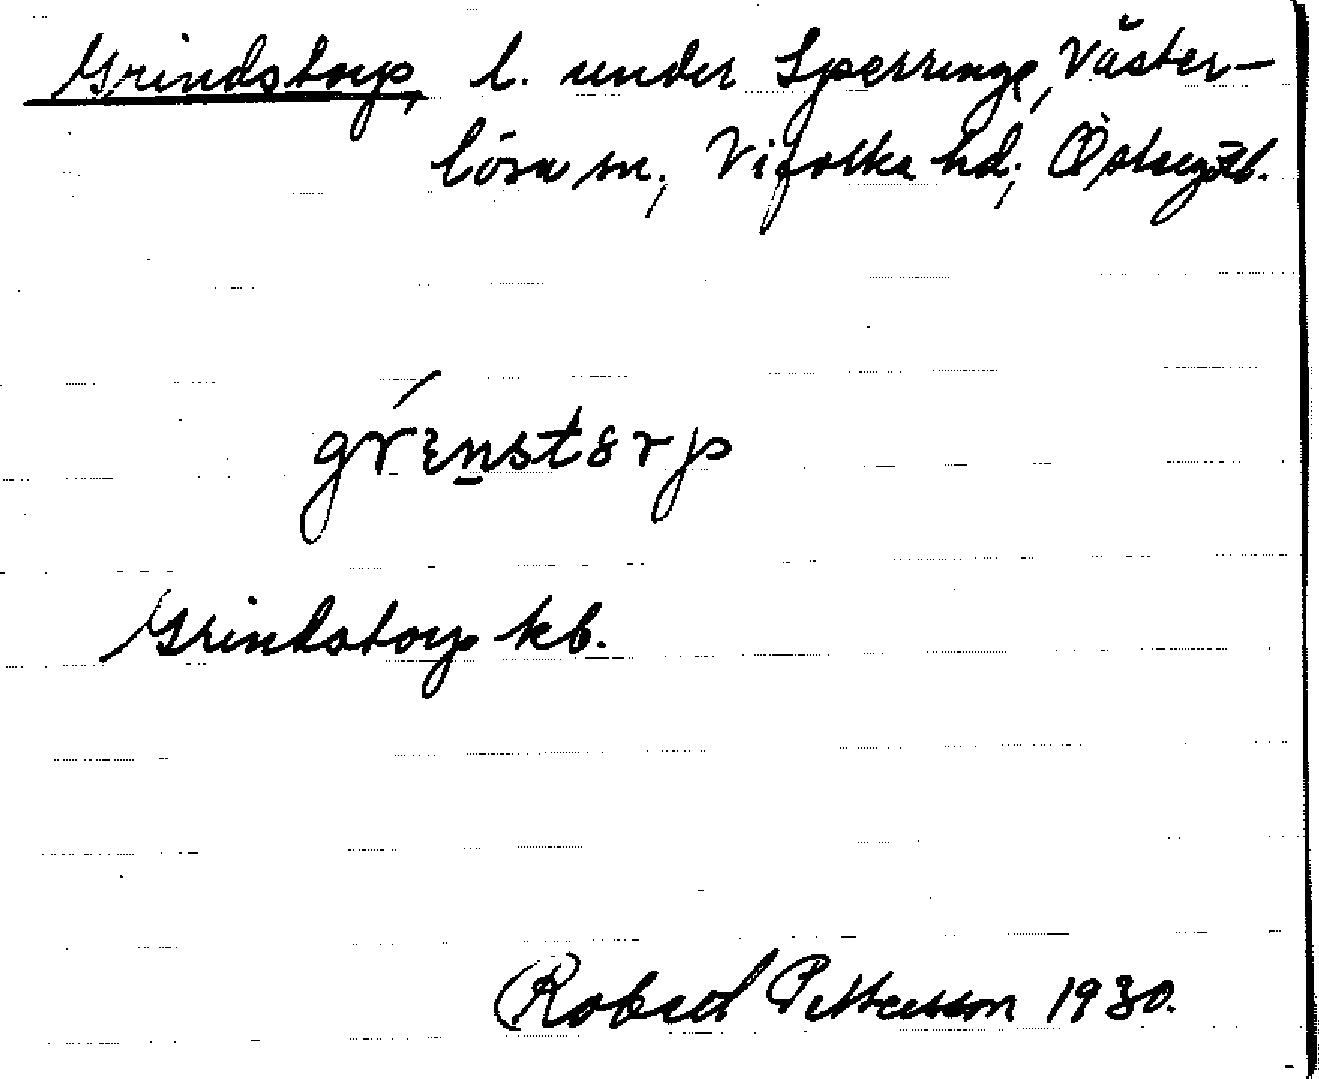 Grindstorp, l. under Sperringe, Väster-
lösa sn., Vifolka hd., Östergötl.
grɛnstɵrp
Grindstorp kb.
Robert Petterson 1930.